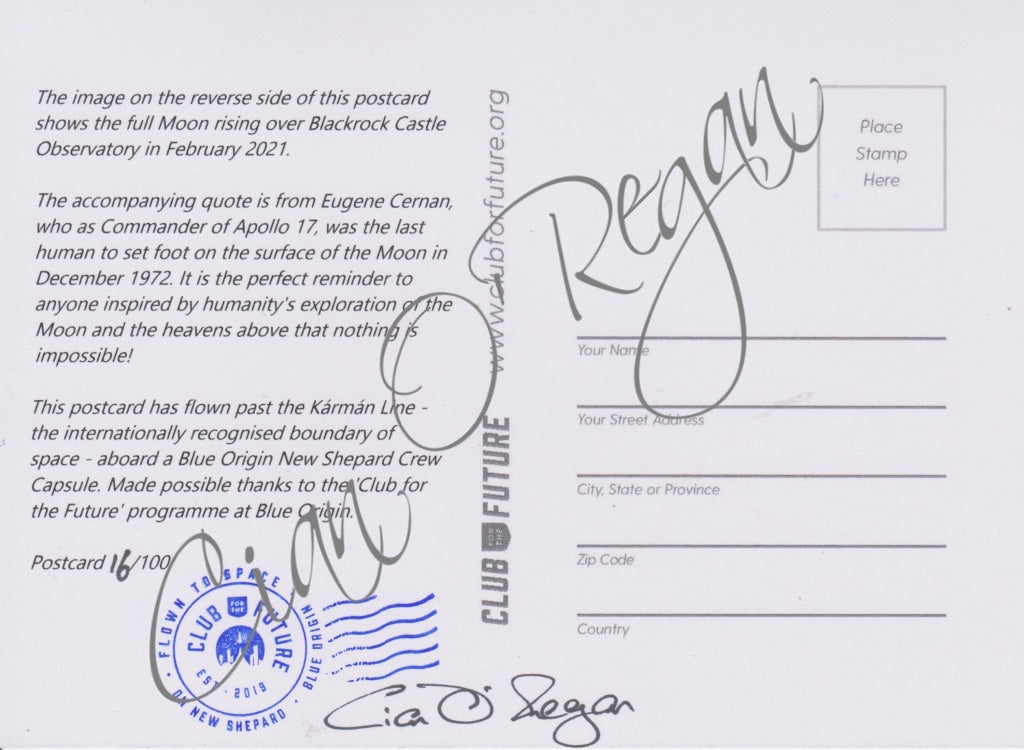 The image on the reverse side of this postcard
shows the full Moon rising over Blackrock Castle
Observatory in February 2021.
The accompanying quote is from Eugene Cernan,
who as Commander of Apollo 17, was the last
human to set foot on the surface of the Moon in
December 1972. It is the perfect reminder to
anyone inspired by humanity's exploration of the
Moon and the heavens above that nothing is
impossible!
This postcard has flown past the Kármán Line -
the internationally recognised boundary of
space - aboard a Blue Origin New Shepard Crew
Capsule. Made possible thanks to the 'Club for
the Future' programme at Blue Origin.
Postcard 16/100
FLOWN TO SPACE
ON NEW SHEPARD
BLUE ORIGIN
CLUB
FOR
THE
FUTURE
EST · 2019
Cian O'Regan
Cian O Regan
www.clubforfuture.org
CLUB FOR THE FUTURE
Place
Stamp
Here
Your Name
Your Street Address
City, State or Province
Zip Code
Country